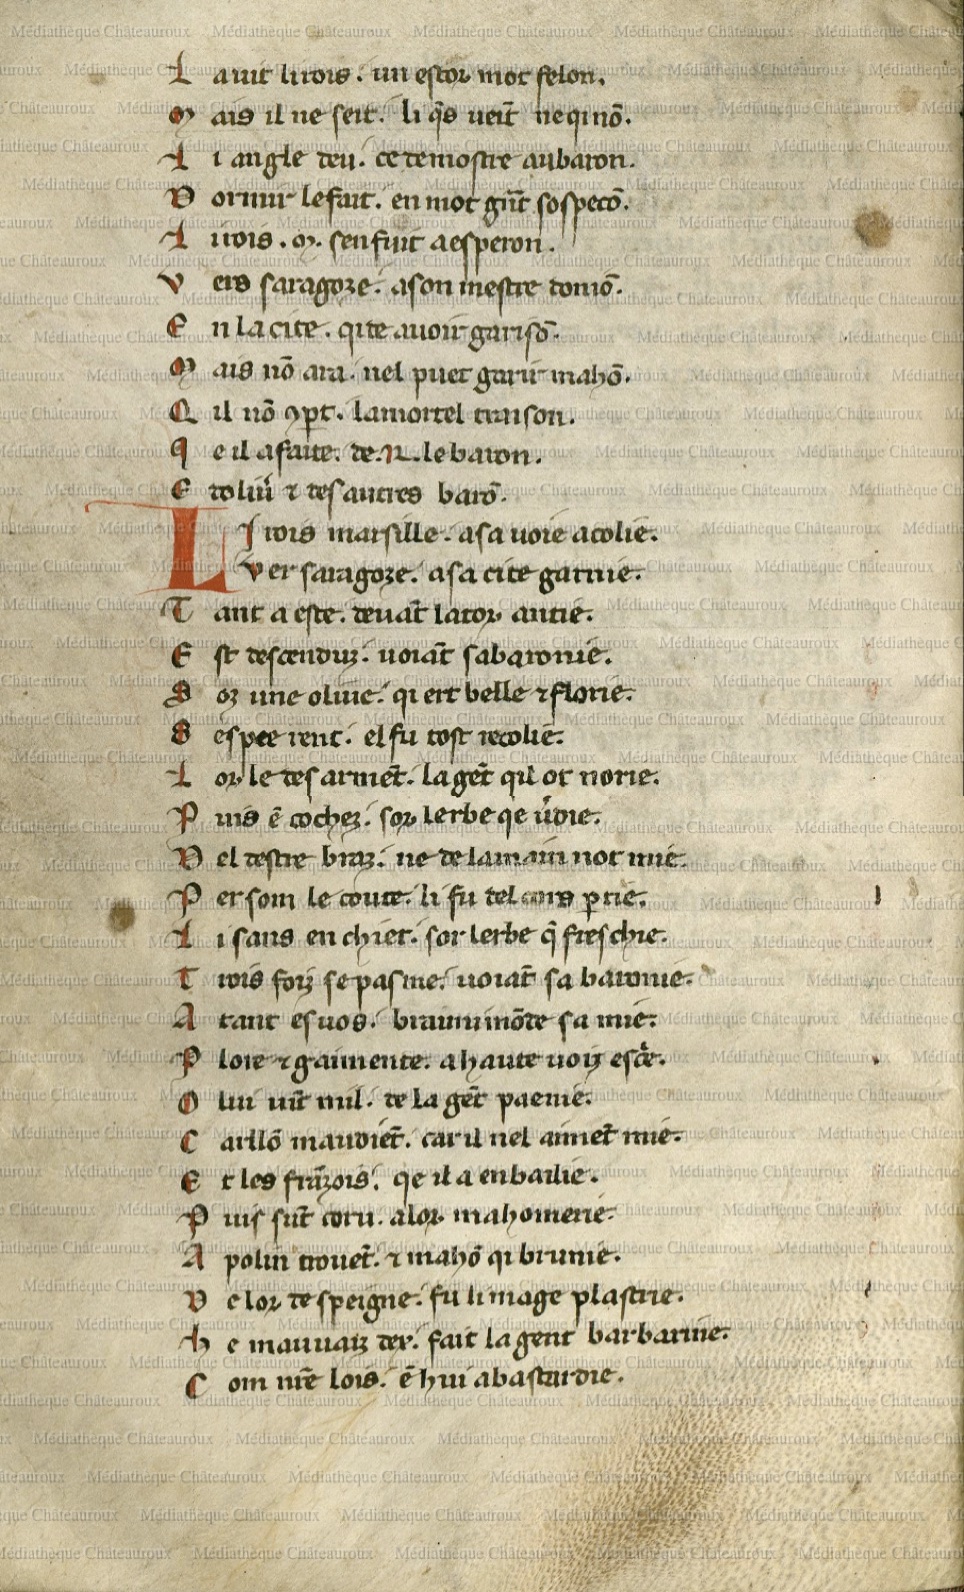 L a uit li rois . un estor mot felon.
M ais il ne seit . li q̃s ueit ne qi nõ.
L i angle deu . ce demostre au baron.
D ormir le fait . en mot gñt sospecõ.
L i rois . M . sen fuit a esperon.
V ers saragoze . a son mestre doniõ.
E n la cite . qide auoir garisõ.
M ais nõ ara . nel puet garir mahõ.
C il nõ ꝯp̱t . la mortel traison.
Q e il a faite . de . R . le baron.
E t oliũ ⁊ des autres barõ.
L I rois marsille . a sa uoie acolie.
V er saragoze . a sa cite garnie.
T ant a este . deuãt la tor antie.
E st descenduz . uoiãt sa baronie.
S oz une oliue . qi ert belle ⁊ florie.
S espee rent . el fu tost recolie.
L or le desarmẽt . la gẽt qil ot norie.
P uis ẽ cochez . sor lerbe qe u̾die.
D el destre braz . ne de la main not mie.
P er som le coute . li fu del cors p̱tie.
L i sans en chiet . sor lerbe q̃ freschie.
T rois foiz se pasme . uoiãt sa baronie.
A tant es uos . braimimõde sa mie.
P lore ⁊ gaimente . a haute uoiz esc̾e.
O lui uiñt mil . de la gẽt paenie.
C arllõ maudiẽt . car il nel aimẽt mie.
E t les frãzois . qe il a en bailie.
P uis sũt coru . a lor mahomerie.
A polin trouẽt . ⁊ mahõ qi brunie.
D e lor despeigne . fu limage plastrie.
H e mauuaiz dex . fait la gent barbarine.
C om nr̃e lois . ẽ hui abastardie.